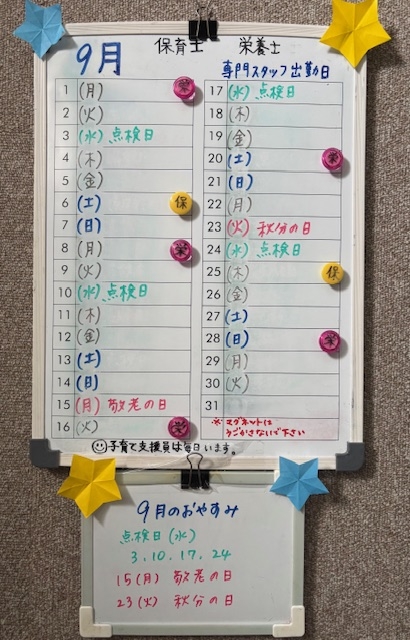 9月
保育士 栄養士
専門スタッフ出勤日
1 (月) 栄
2 (火)
3 (水) 点検日
4 (木)
5 (金)
6 (土) 保
7 (日)
8 (月) 栄
9 (火)
10 (水) 点検日
11 (木)
12 (金)
13 (土)
14 (日)
15 (月) 敬老の日
16 (火) 栄
17 (水) 点検日
18 (木)
19 (金)
20 (土) 栄
21 (日)
22 (月)
23 (火) 秋分の日
24 (水) 点検日
25 (木) 保
26 (金)
27 (土)
28 (日) 栄
29 (月)
30 (火)
31
※マグネットは
うごかさないで下さい
子育て支援員は毎日います。
9月のおやすみ
点検日(水)
3.10.17.24
15(月) 敬老の日
23(火) 秋分の日